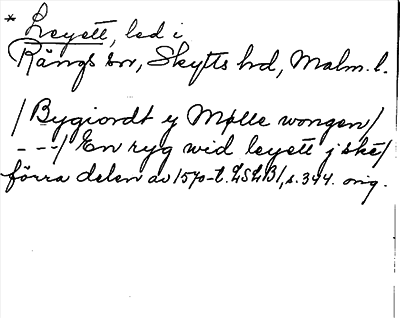 * Leyett, led i
Rängs sn, Skytts hd, Malm. l.
/ Bygiordt y Mølle wongen /
- - -/ En ryg wid leyett j ske/
förra delen av 1570-t. LSLB1, s. 344. orig.